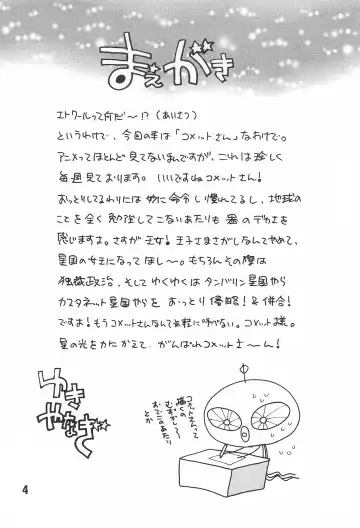 まえがき
エトワールって何だ〜!?(あいさつ)
というわけで、今回の本は「コメットさん」なわけで。
アニメってほとんど見てないまんですが、これは珍しく
毎週見ております。いいですねコメットさん!
おっとりしてるわりには妙に命令し慣れてるし、地球の
ことを全く勉強してこないあたりも器のデカさを
感じますよ。さすが王女!王子さまさがしなんてやめて、
星国の女王になってほし〜。もちろんその際は
独裁政治、そしてゆくゆくはタンバリン星国やら
カスタネット星国やらをおっとり侵略!&併合!
ですよ!もうコメットさんなんてお軽に呼べない。コメット様。
星の光をカにかえて、がんばれコメットさ〜ん!
ゆき
やなぎ
コメットさんって
描くの
むずかし〜
おでこのあたり
とか
4